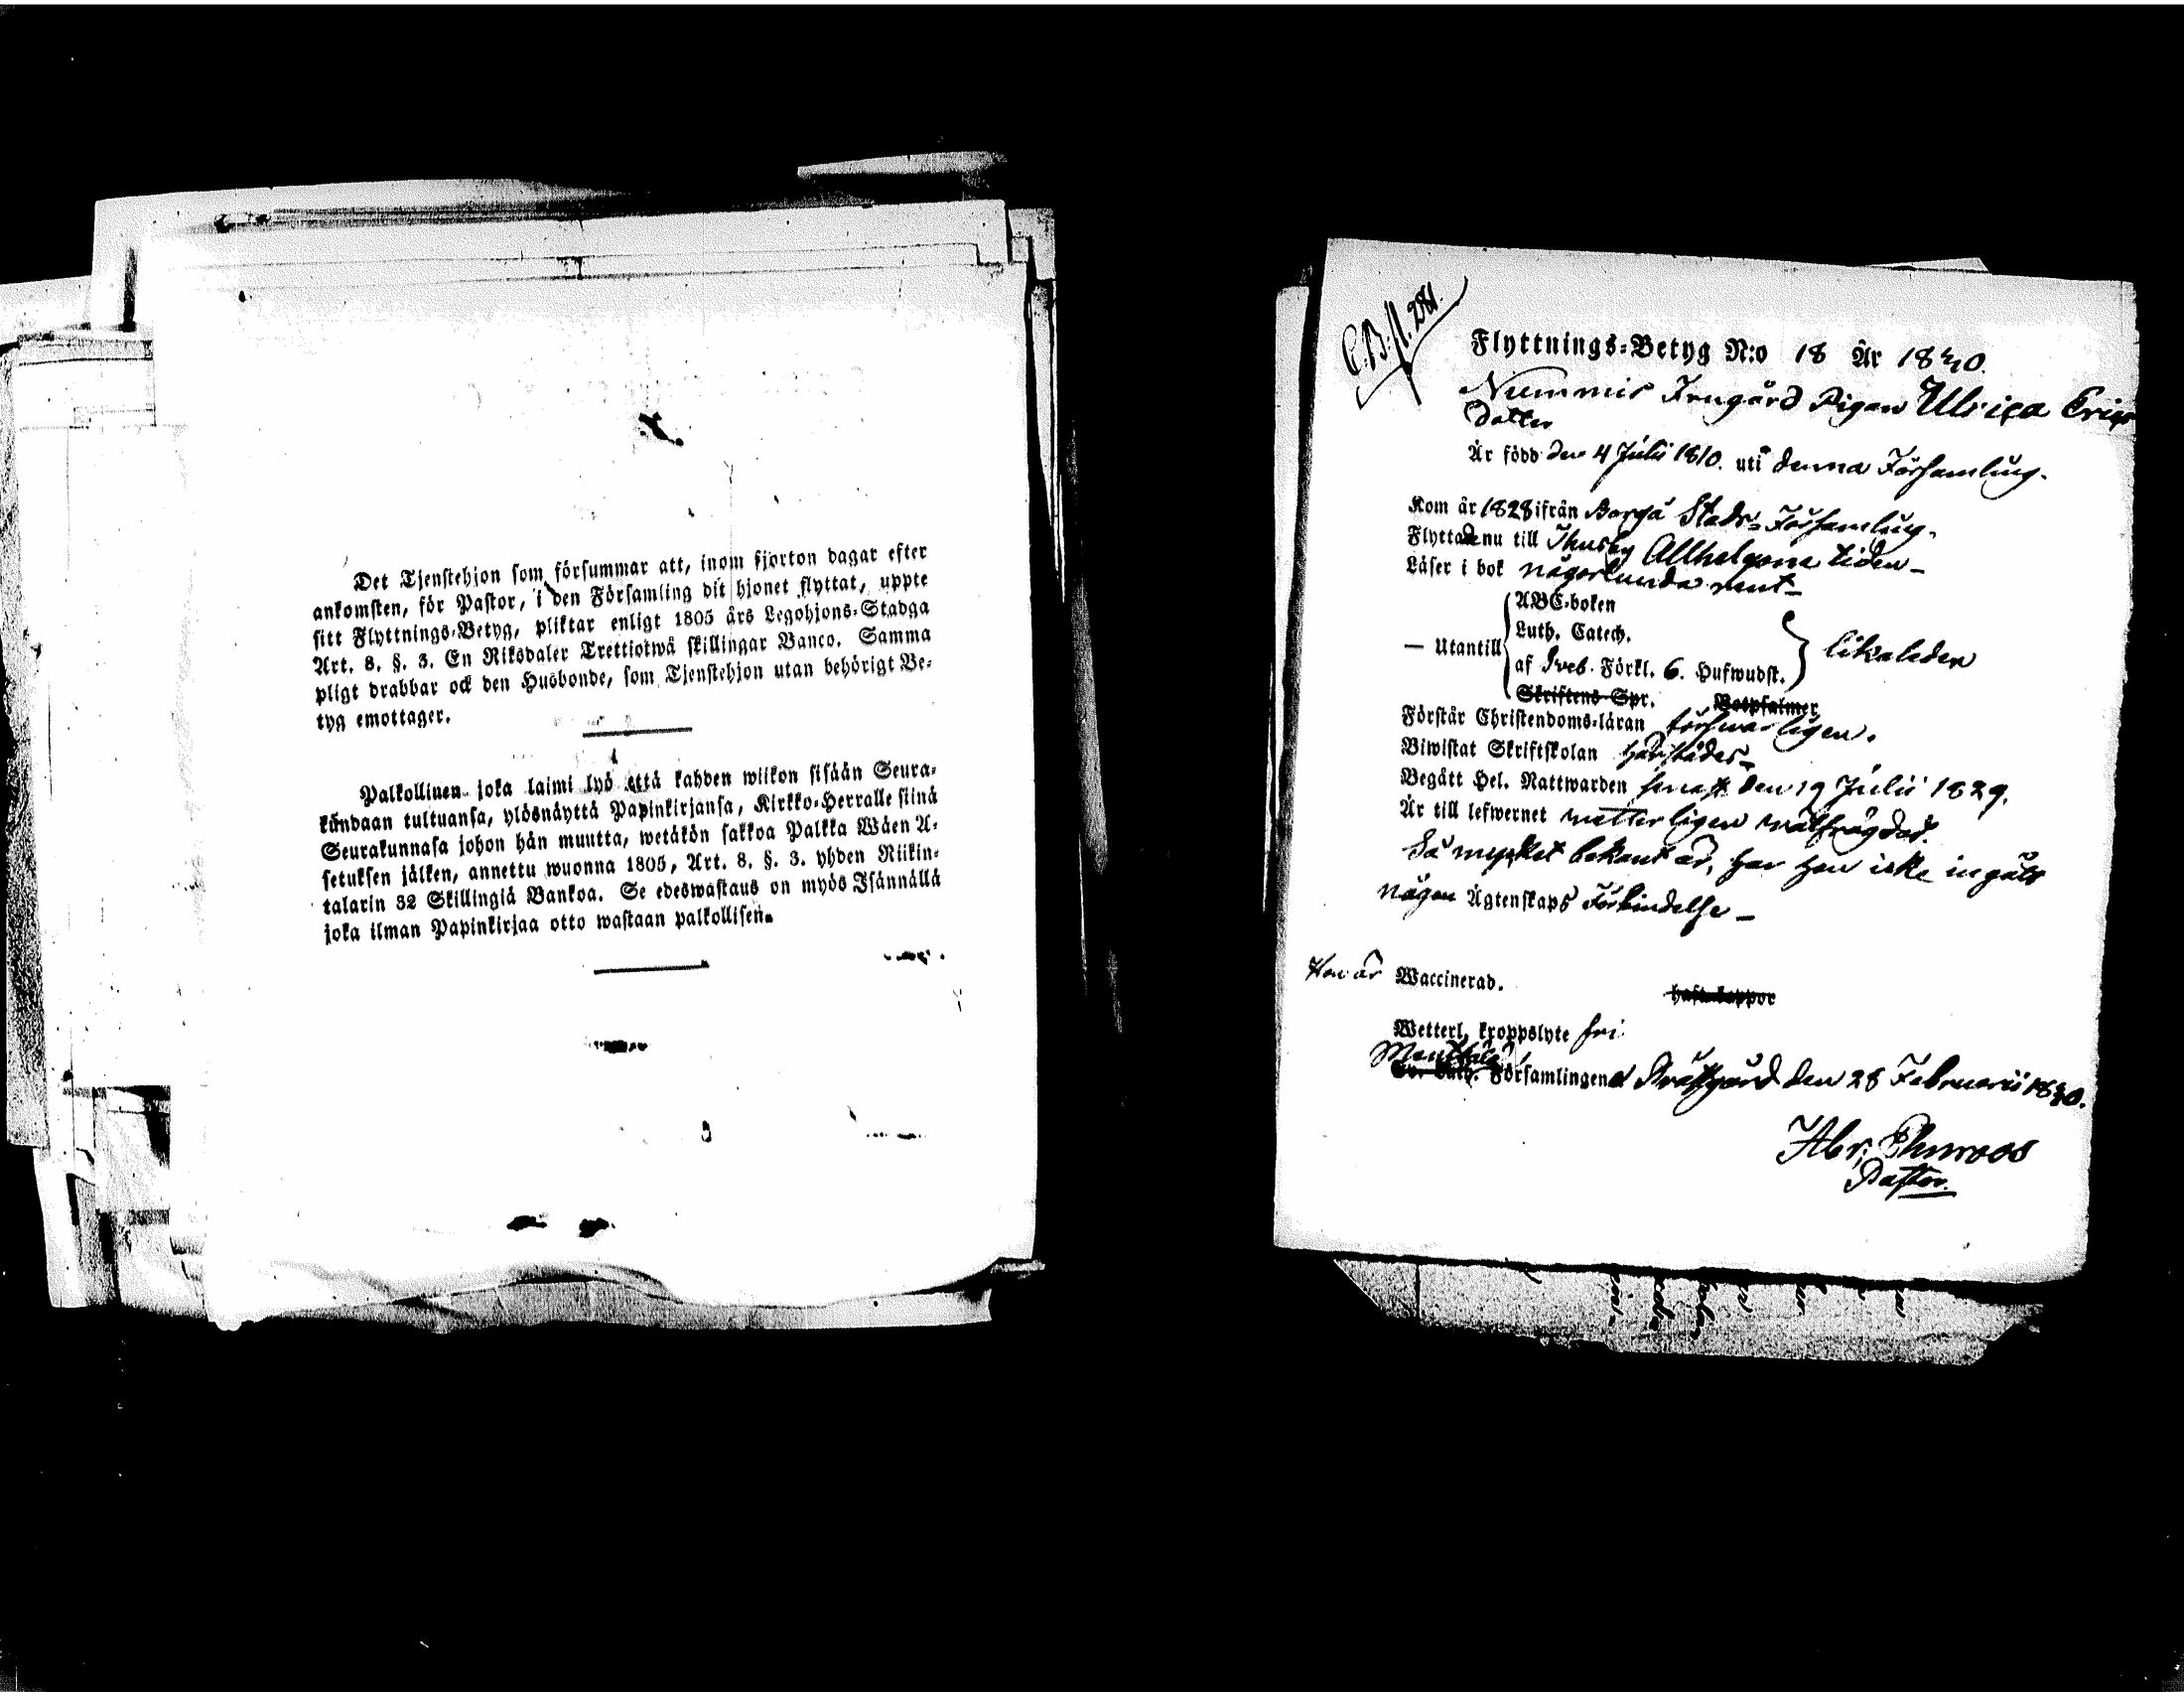 Det Tjenstehjon som försummar att, inom fjorton dagar efter
ankomsten, för Pastor, i den Församling dit hjonet flyttat, uppte
sitt Flyttnings-Betyg, pliktar enligt 1805 års Legohjons-Stadga
Art. 8. §. 3. En Riksdaler Trettiotwå skillingar Banco. Samma
pligt drabbar ock den Husbonde, som Tjenstehjon utan behörigt Be-
tyg emottager.
Palkollinen joka laimi lyö että kahden wiikon sisään Seura-
kundaan tultuansa, ylösnäyttä Papinkirjansa, Kirkko-Herralle siinä
Seurakunnasa johon hän muutta, wetäkön sakkoa Palkka Wäen A-
setuksen jälken, annettu wuonna 1805, Art. 8. §. 3. yhden Riikin-
talarin 32 Skillingiä Bankoa. Se edeswastaus on myös Isännällä
joka ilman Papinkirjaa otto wastaan palkollisen.
C.B. fl. 281.
Flyttnings-Betyg N:o 18 År 1830.
Nummis Pigan Ulrica Erics
dotter
Är född den 4 Julii 1810. uti denna Församling.
Kom år 1828 ifrån Borgå Stads-Församling.
Flyttade nu till Thusby Allhelgona tiden –
Läser i bok någorlunda rent –
ABC-boken
Luth. Catech.
— Utantill af Sveb. Förkl. 6. Hufwudst. likaledes
Skriftens Spr. Botpsalmer
Förstår Christendoms-läran försvarligen.
Biwistat Skriftskolan härstädes –
Begått Hel. Nattwarden senast den 19 Julii 1829.
Är till lefwernet wetterligen wälfrägdad.
Så mycket bekant är, har hon icke ingått
någon Ägtenskaps Förbindelse –
Hon är Waccinerad. haft koppor
Wetterl. kroppslyte fri.
Mentzälä
Ev. Luth. Församlingens Prästgård den 28 Februarii 1830.
Abr. Ehnroos
Pastor.